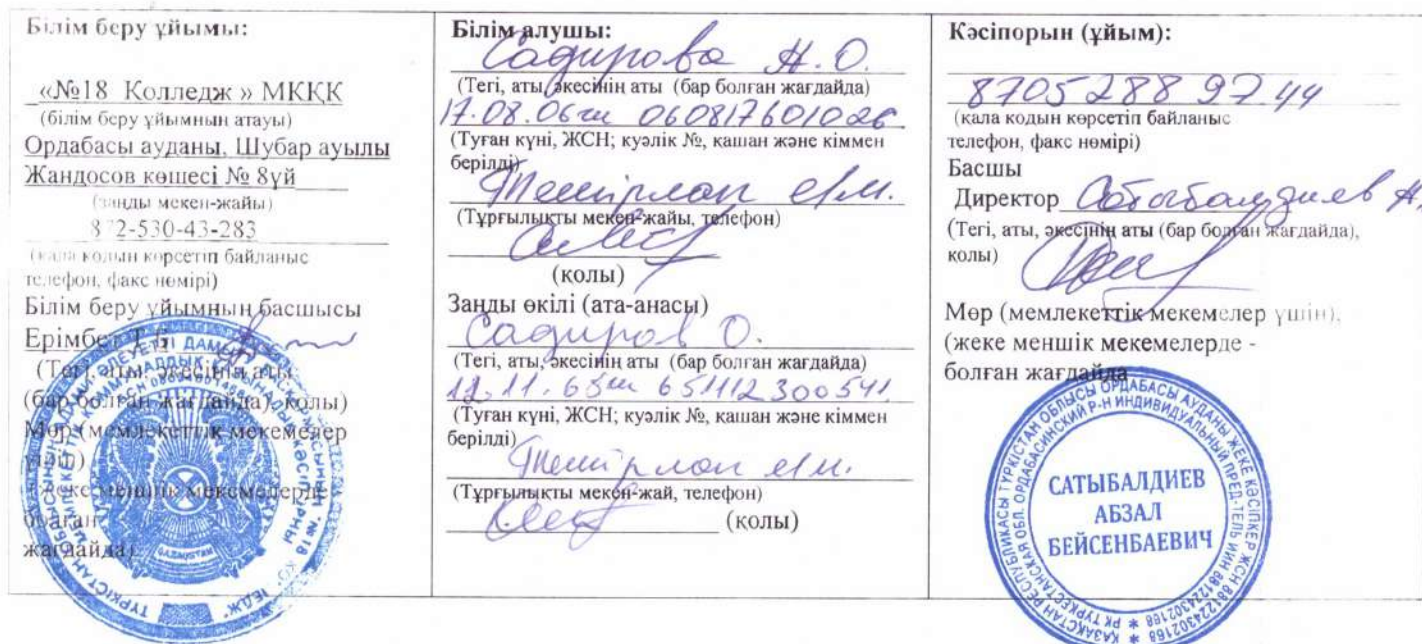 Білім беру ұйымы:
«№18 Колледж » МКҚК
(білім беру ұйымның атауы)
Ордабасы ауданы, Шубар ауылы
Жандосов көшесі № 8үй
(заңды мекен-жайы)
872-530-43-283
(кала кодын көрсетіп байланыс
телефон, факс нөмірі)
Білім беру ұйымның басшысы
Ерімбет Т
(Тегі, аты, әкесінің аты
(бар болған жағдайда), қолы)
Мөр (мемлекеттік мекемелер
үшін)
жеке меншік мекемелерде
болған
жағдайда)
Білім алушы:
Садирова Н.О.
(Тегі, аты, әкесінің аты (бар болған жағдайда)
17.08.06ж 060817601026
(Туған күні, ЖСН; куәлік №, қашан және кіммен
берілді)
Темірлан а/м.
(Тұрғылықты мекен-жайы, телефон)
(қолы)
Заңды өкілі (ата-анасы)
Садиров О.
(Тегі, аты, әкесінің аты (бар болған жағдайда)
12.11.65ж 651112300541
(Туған күні, ЖСН; куәлік №, қашан және кіммен
берілді)
Темірлан а/м.
(Тұрғылықты мекен-жай, телефон)
(қолы)
Кәсіпорын (ұйым):
8705 288 97 44
(кала кодын көрсетіп байланыс
телефон, факс нөмірі)
Басшы
Директор Сатыбалдиев А.
(Тегі, аты, әкесінің аты (бар болған жағдайда),
қолы)
Мөр (мемлекеттік мекемелер үшін),
(жеке меншік мекемелерде -
болған жағдайда
ҚАЗАҚСТАН РЕСПУБЛИКАСЫ ТҮРКІСТАН ОБЛЫСЫ ОРДАБАСЫ АУДАНЫ ЖЕКЕ КӘСІПКЕР ЖСН 881224302168
РК ТУРКЕСТАНСКАЯ ОБЛ. ОРДАБАСИНСКИЙ Р-Н ИНДИВИДУАЛЬНЫЙ ПРЕД-ТЕЛЬ ИИН 881224302168
САТЫБАЛДИЕВ
АБЗАЛ
БЕЙСЕНБАЕВИЧ